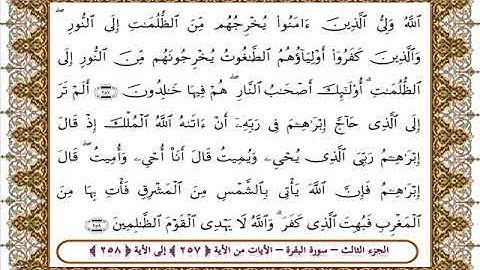 ٱللَّهُ وَلِىُّ ٱلَّذِينَ ءَامَنُوا۟ يُخْرِجُهُم مِّنَ ٱلظُّلُمَـٰتِ إِلَى ٱلنُّورِ ۖ
وَٱلَّذِينَ كَفَرُوٓا۟ أَوْلِيَآؤُهُمُ ٱلطَّـٰغُوتُ يُخْرِجُونَهُم مِّنَ ٱلنُّورِ إِلَى
ٱلظُّلُمَـٰتِ ۗ أُو۟لَـٰٓئِكَ أَصْحَـٰبُ ٱلنَّارِ ۖ هُمْ فِيهَا خَـٰلِدُونَ ﴿٢٥٧﴾ أَلَمْ تَرَ
إِلَى ٱلَّذِى حَآجَّ إِبْرَٰهِـۧمَ فِى رَبِّهِۦٓ أَنْ ءَاتَىٰهُ ٱللَّهُ ٱلْمُلْكَ إِذْ قَالَ
إِبْرَٰهِـۧمُ رَبِّىَ ٱلَّذِى يُحْىِۦ وَيُمِيتُ قَالَ أَنَا۠ أُحْىِۦ وَأُمِيتُ ۖ قَالَ
إِبْرَٰهِـۧمُ فَإِنَّ ٱللَّهَ يَأْتِى بِٱلشَّمْسِ مِنَ ٱلْمَشْرِقِ فَأْتِ بِهَا مِنَ
ٱلْمَغْرِبِ فَبُهِتَ ٱلَّذِى كَفَرَ ۗ وَٱللَّهُ لَا يَهْدِى ٱلْقَوْمَ ٱلظَّـٰلِمِينَ ﴿٢٥٨﴾
الجزء الثالث – سورة البقرة – الآيات من الآية ﴿٢٥٧﴾ إلى الآية ﴿٢٥٨﴾